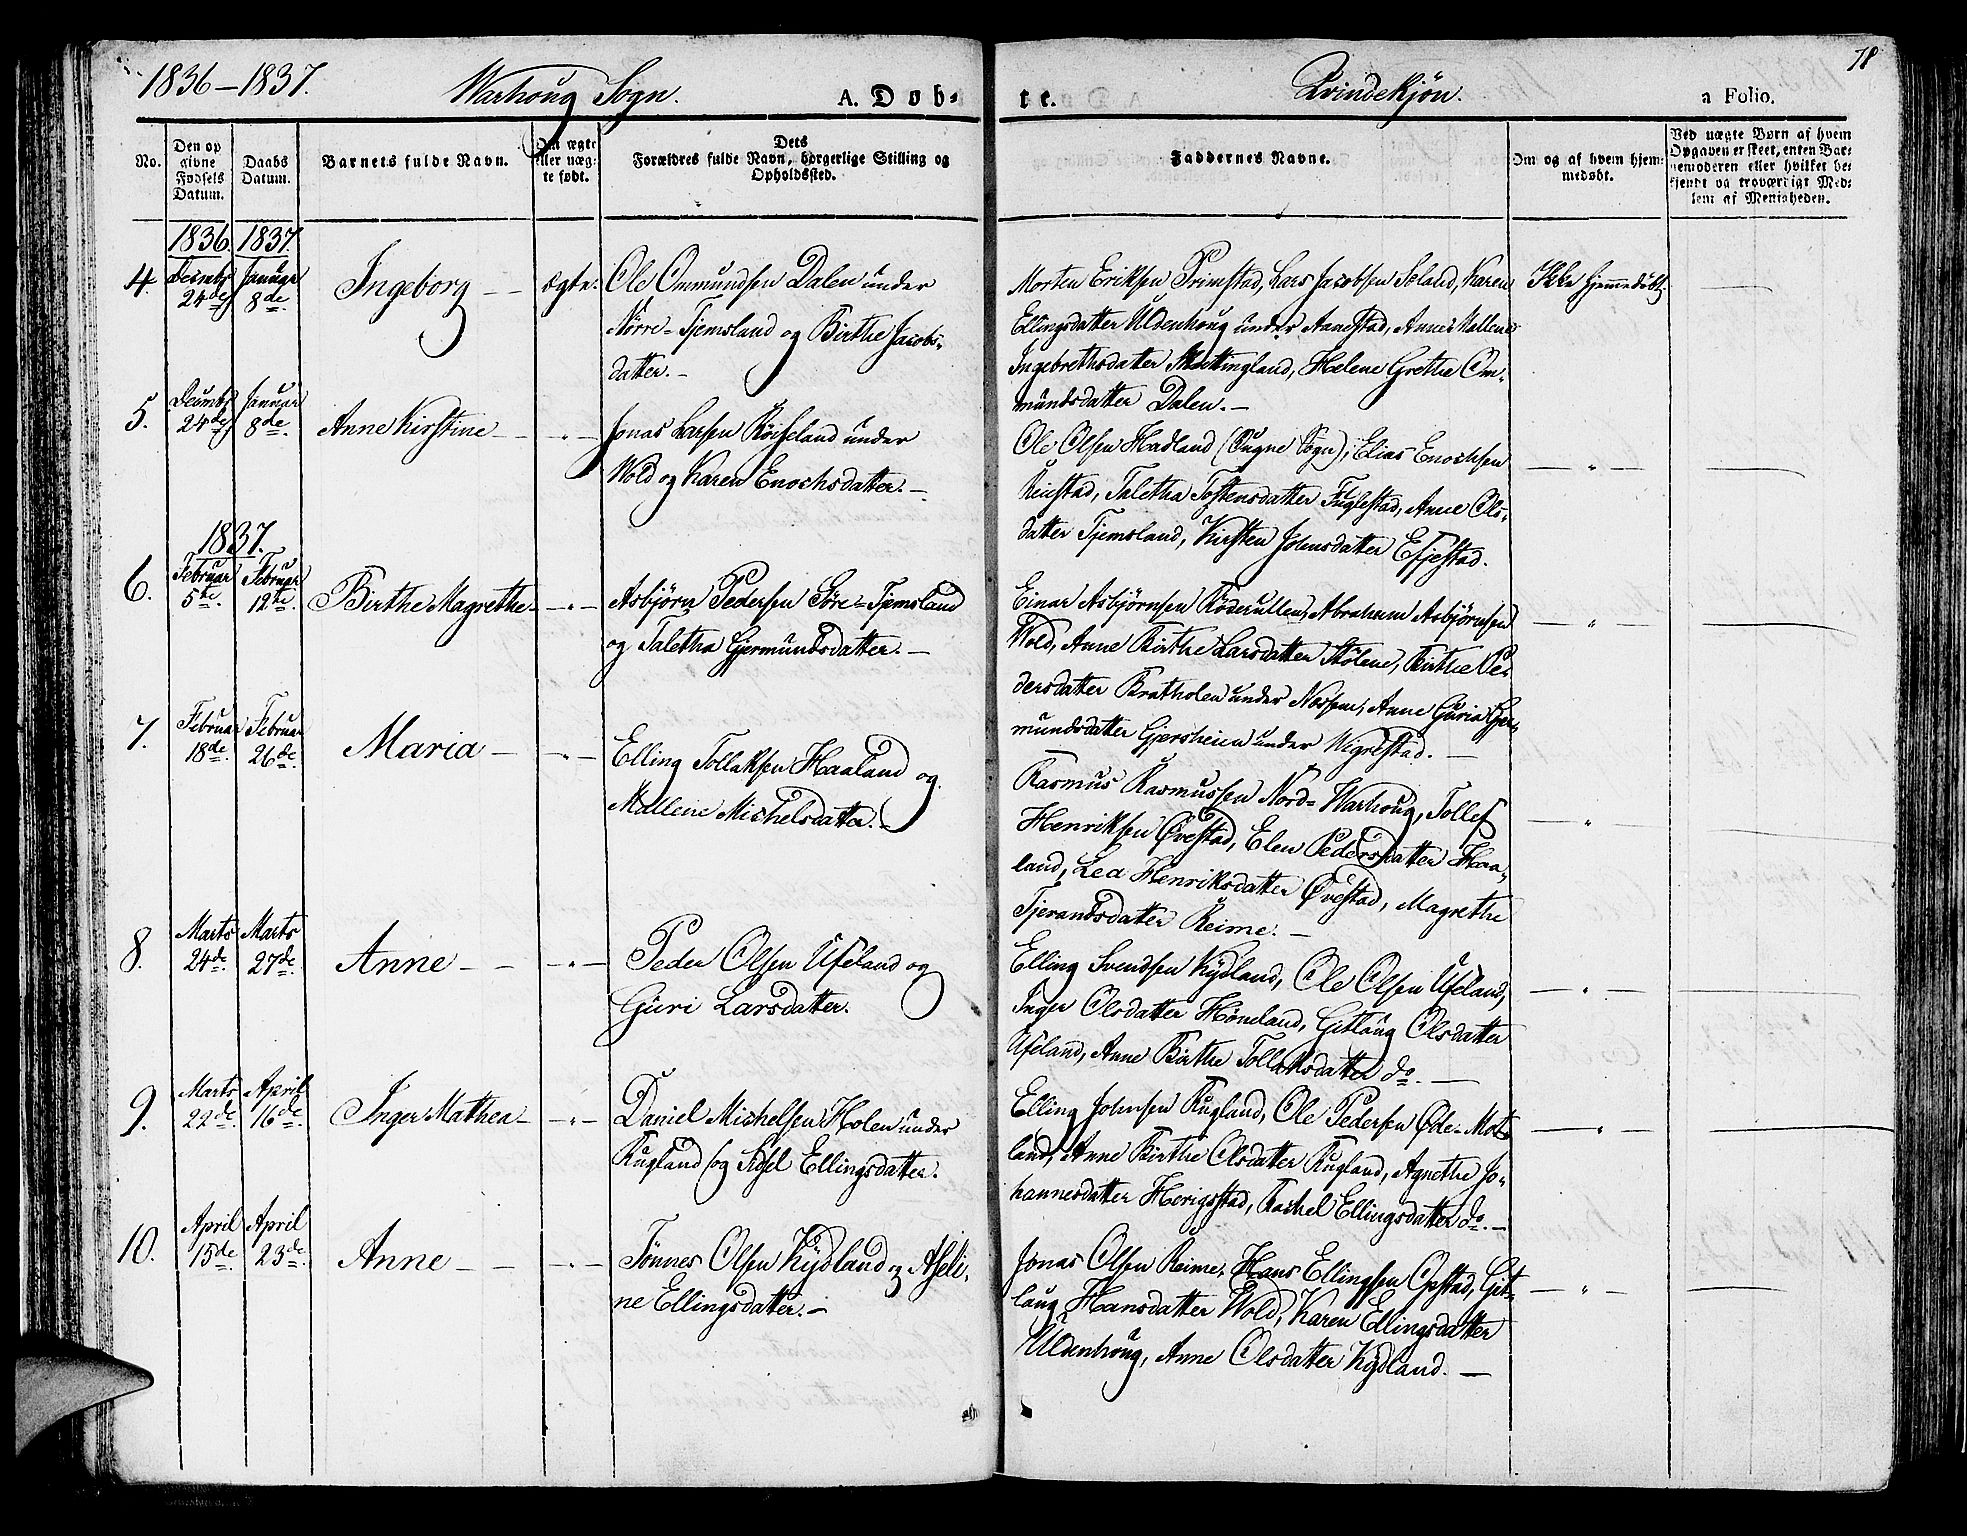 1836–1837. Warhoug Sogn. A. Døb-
te. Qvindekjön. a Folio. 78
No.
Den op
givne
Fødsels
Datum.
Daabs
Datum.
Barnets fulde Navn.
Om ægte
eller uæg-
te født.
Dets
Forældres fulde Navn, borgerlige Stilling og
Opholdssted.
Faddernes Navne.
Om og af hvem hjem-
medøbt.
Ved uægte Børn af hvem
Opgaven er skeet, enten Bar-
nemoderen eller hvilket be-
kjendt og troværdigt Med-
lem af Menigheden.
1836. 1837.
4. Decmbr 24de Januar 8de. Ingeborg – – ægte.
Ole Ommundsen Dalen under
Nörre-Tjemsland og Birthe Jacobs-
datter. –
Morten Eriksen Primstad, Lars Jacobsen Soland, Karen
Ellingsdatter Uldenhoug under Aanestad, Anne Mallene
Ingebrethsdatter Mottingland, Helene Grethe Om-
mundsdatter Dalen. –
Ikke hjemmedöbt.
5. Decmbr 24de Januar 8de. Anne Kirstine – – " –
Jonas Larsen Röiseland under
Wold og Karen Enochsdatter. –
Ole Olsen Hadland (Ougne Sogn), Elias Enochsen
Reiestad, Taletha Tostensdatter Fuglestad, Anne Ols-
datter Tjemsland, Kirsten Johnsdatter Efjestad.
– " –
1837.
6. Februar 5te. Februar 12te. Birthe Magrethe – – " –
Asbjörn Pedersen Söre-Tjemsland
og Taletha Gjermundsdatter. –
Einar Asbjörnsen Röderullen, Abraham Asbjörnsen
Wold, Anne Birthe Larsdatter Stölene, Birthe Pe-
dersdatter Bratholen under Nossem, Anne Guria Gjer-
mundsdatter Gjersheien under Wigrestad. –
– " –
7. Februar 18de. Februar 26de. Maria – – " –
Elling Tollaksen Haaland og
Mallene Michelsdatter. –
Rasmus Rasmussen Nord-Warhoug, Tollef
Henriksen Øvestad, Elen Pedersdatter Haa-
land, Lea Henriksdatter Øvestad, Magrethe
Tjerandsdatter Reime. –
– " –
8. Marts 24de. Marts 27de. Anne – – – " –
Peder Olsen Ufeland og
Guri Larsdatter.
Elling Svendsen Kydland, Ole Olsen Ufeland,
Inger Olsdatter Höneland, Gitlaug Olsdatter
Ufeland, Anne Birthe Tollaksdatter do. –
– " –
9. Marts 22de. April 16de. Inger Mathea – – " –
Daniel Michelsen Holen under
Rugland og Sidsel Ellingsdatter.
Elling Johnsen Rugland, Ole Pedersen Øde-Mots-
land, Anne Birthe Olsdatter Rugland, Agnethe Jo-
hannesdatter Herigsstad, Rachel Ellingsdatter do. –
– " –
10. April 15de. April 23de. Anne – – – " –
Tönnes Olsen Kydland og Aseli-
ne Ellingsdatter. –
Jonas Olsen Reime, Hans Ellingsen Opstad, Git-
laug Hansdatter Wold, Karen Ellingsdatter
Uldenhoug, Anne Olsdatter Kydland. –
– " –